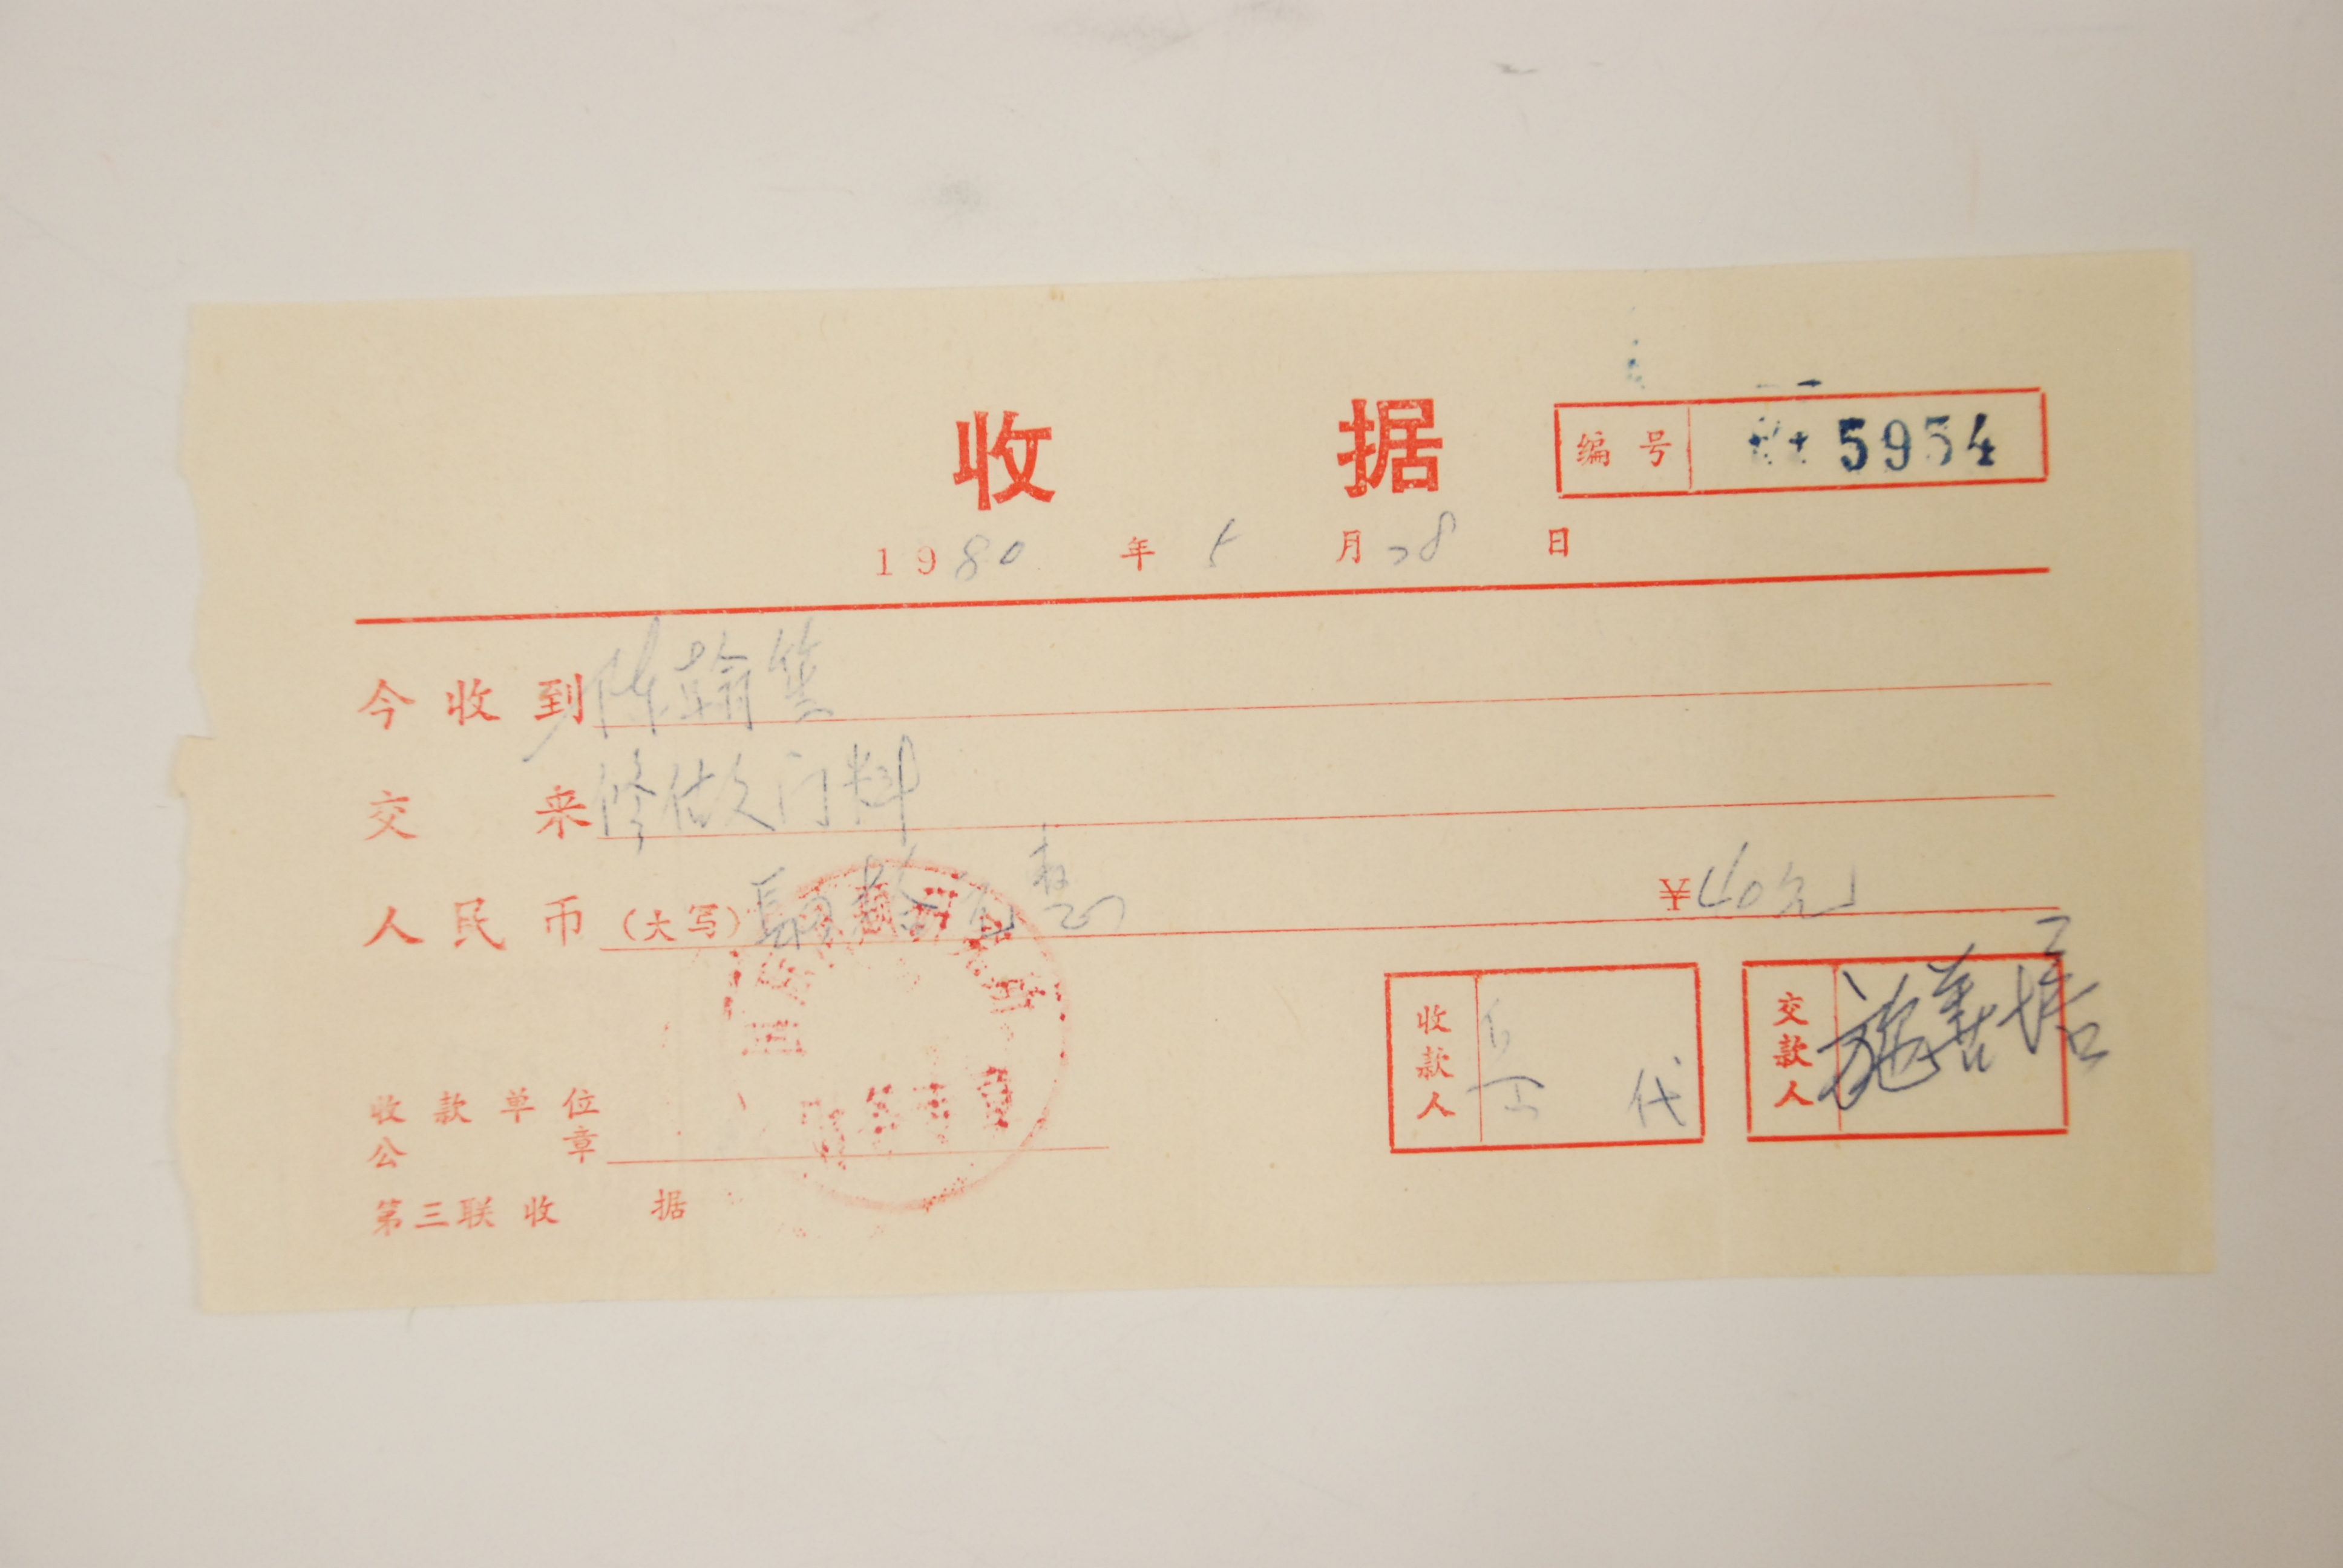 收 据
编 号 5954
1980 年 5 月 28 日
今 收 到 陈翰笙
交 来 修做门料
人 民 币 (大写) 肆拾元整 ¥40元
收款人 岳 代
交款人 施善
收 款 单 位
公 章
第三联 收 据